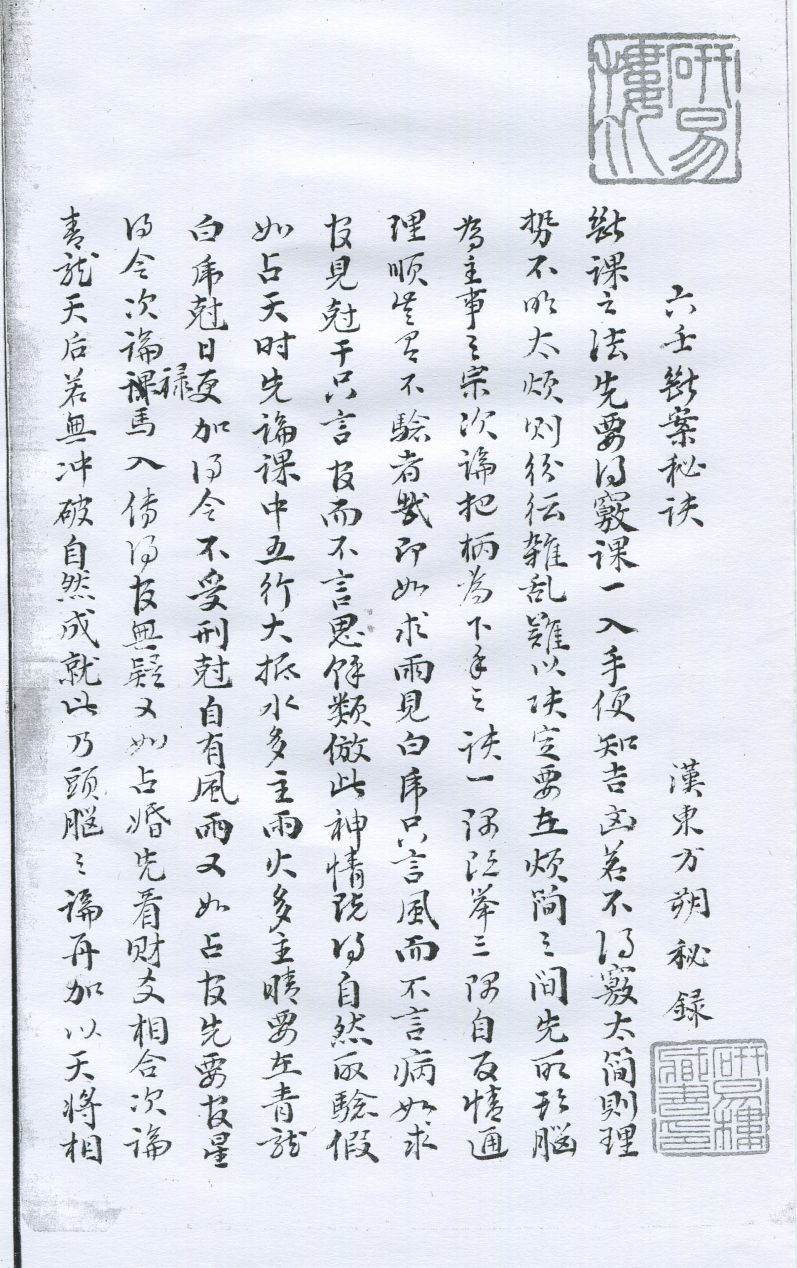 六壬斷案秘诀
漢東方朔秘录
斷课之法先要得竅课一入手便知吉凶若不得竅太简则理
势不明太烦则纷纭雑乱難以决定要在烦简之间先取头脳
為主事之宗次論把柄為下手之诀一隅泛举三隅自反情通
理顺岂有不驗者哉即如求雨见白虎只言風而不言病如求
官見尅干只言官而不言鬼馀類倣此神情既得自然取驗假
如占天时先論课中五行大抵水多主雨火多主晴要在青龍
白虎尅日更加得令不受刑尅自有風雨又如占官先要官星
得令次論禄馬入傳得官無疑又如占婚先看财爻相合次論
青龍天后若無冲破自然成就此乃頭脳之論再加以天將相
研易樓
研易樓藏書印